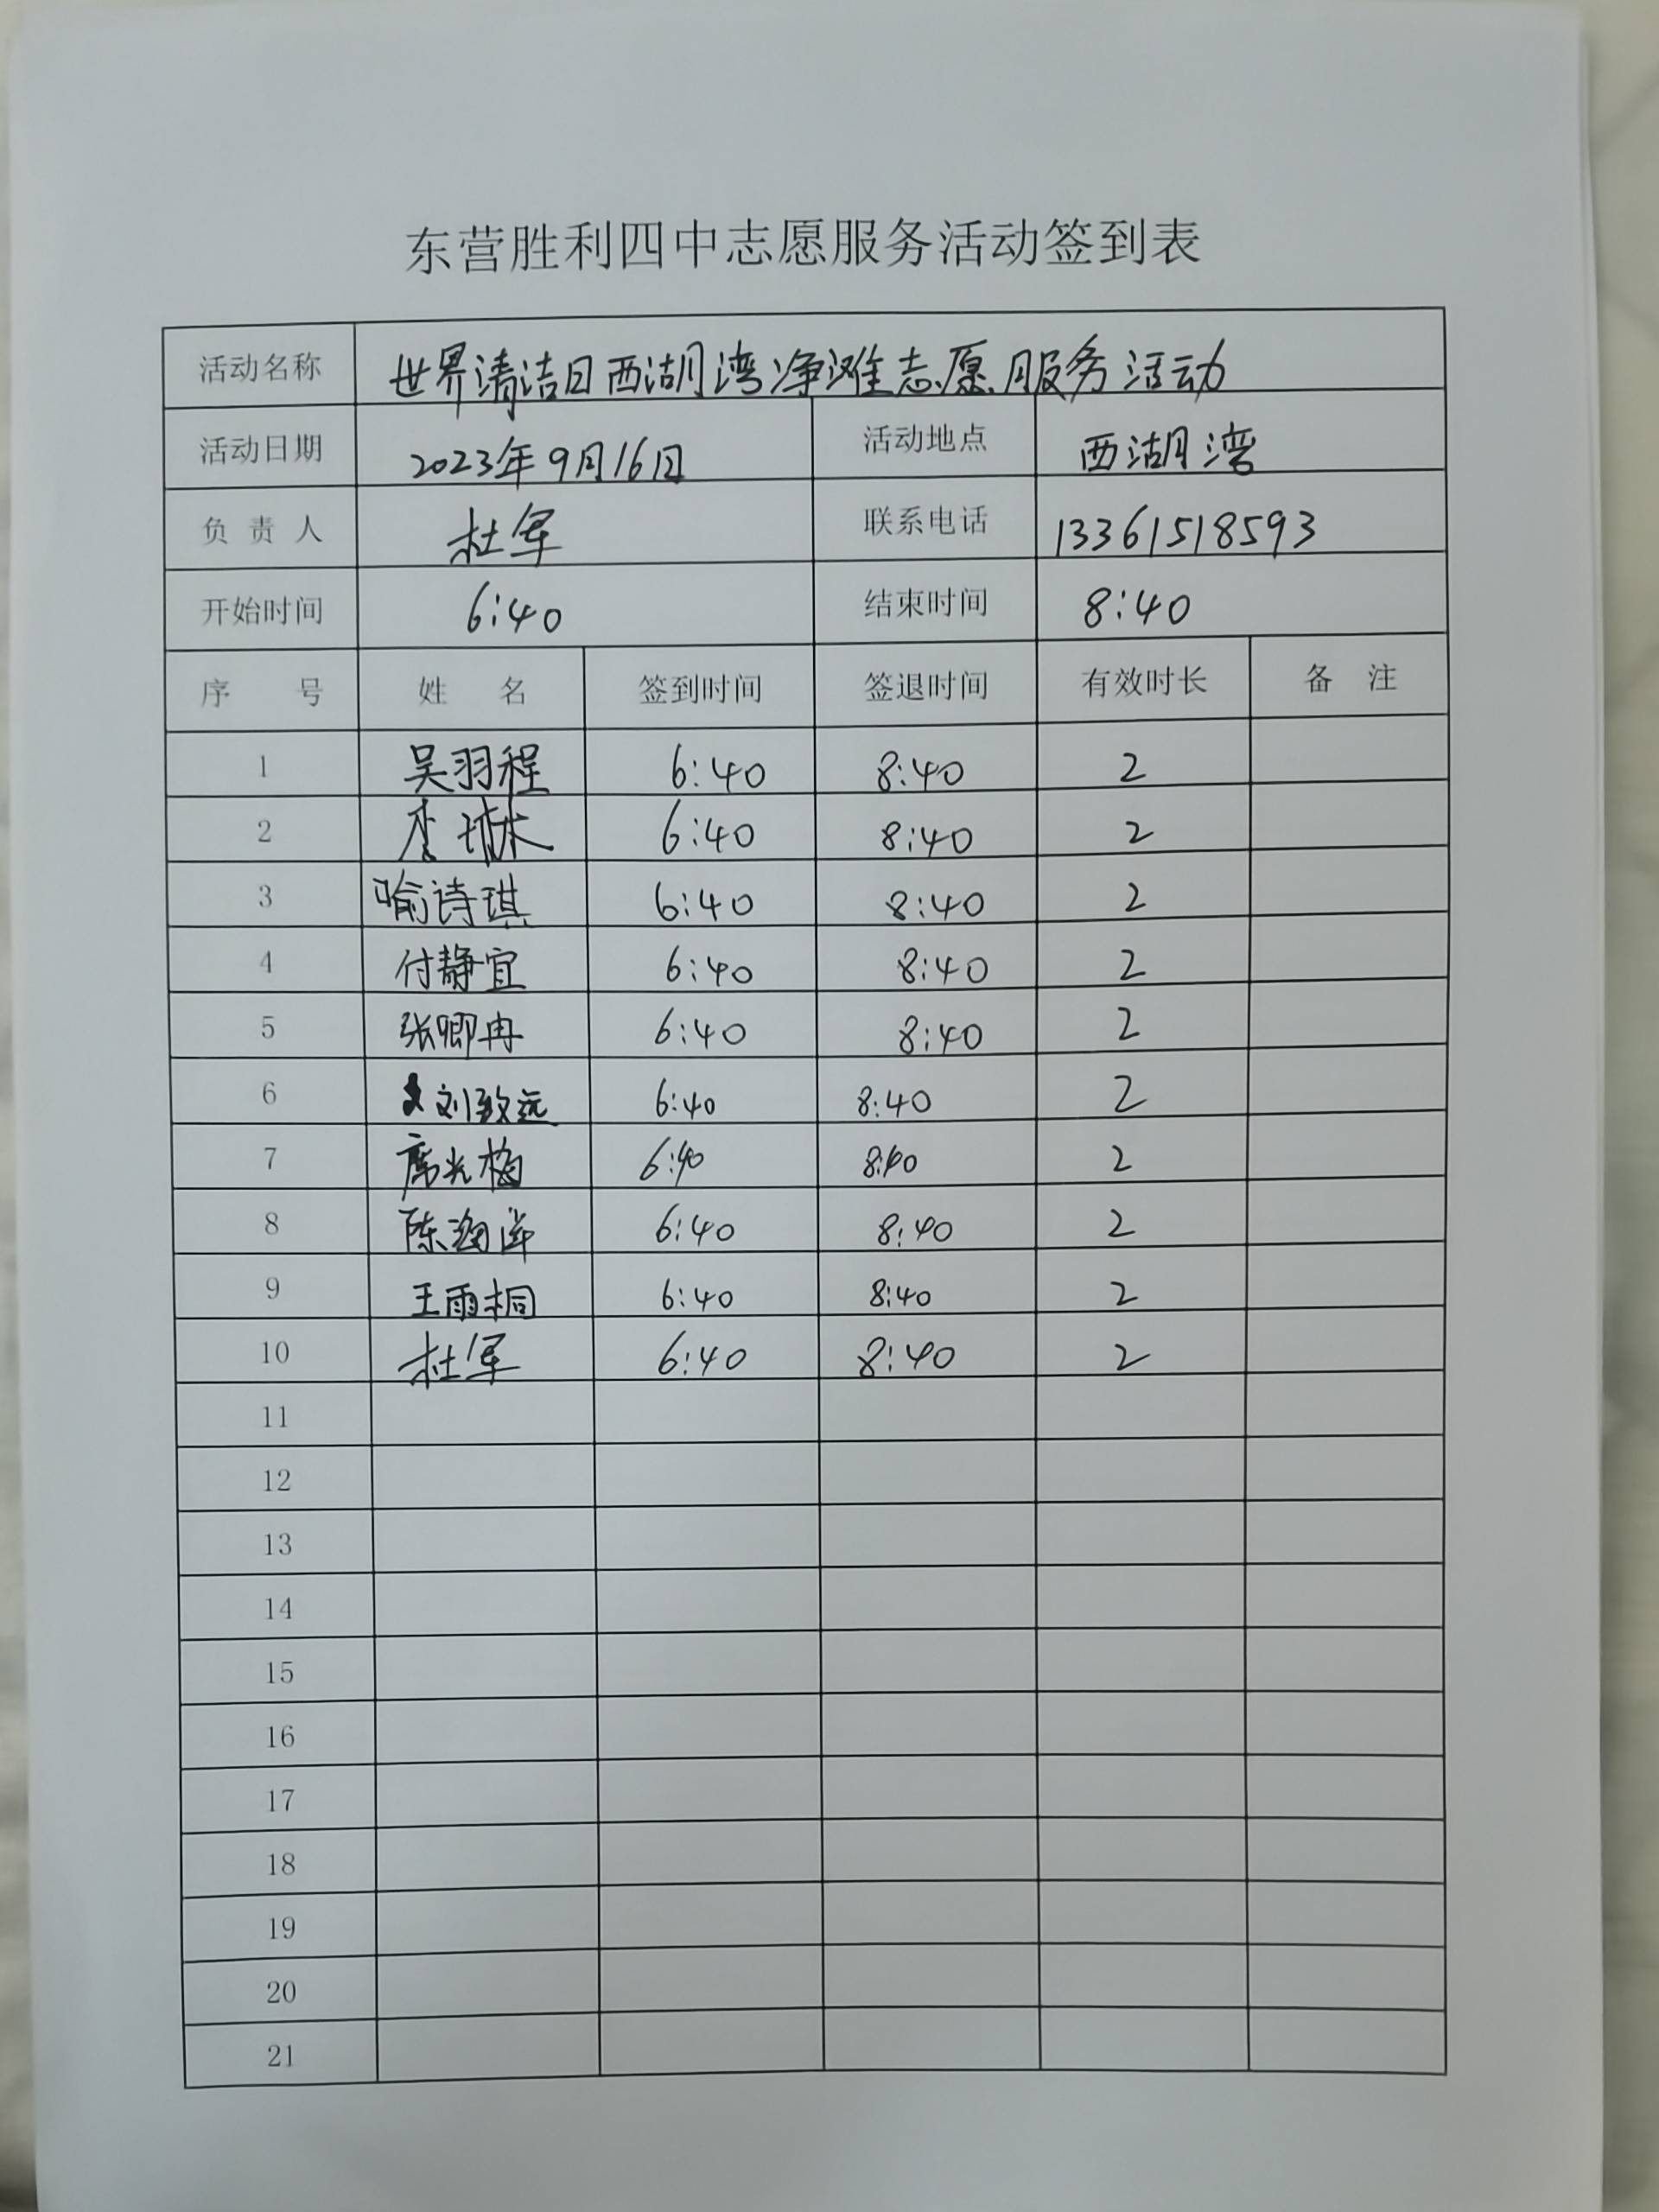 东营胜利四中志愿服务活动签到表
活动名称 世界清洁日西湖湾净滩志愿服务活动
活动日期 2023年9月16日 活动地点 西湖湾
负责人 杜军 联系电话 13361518593
开始时间 6:40 结束时间 8:40
序号 姓名 签到时间 签退时间 有效时长 备注
1 吴羽程 6:40 8:40 2
2 6:40 8:40 2
3 喻诗琪 6:40 8:40 2
4 付静宜 6:40 8:40 2
5 张卿冉 6:40 8:40 2
6 刘致远 6:40 8:40 2
7 6:40 8:40 2
8 6:40 8:40 2
9 王雨桐 6:40 8:40 2
10 杜军 6:40 8:40 2
11
12
13
14
15
16
17
18
19
20
21